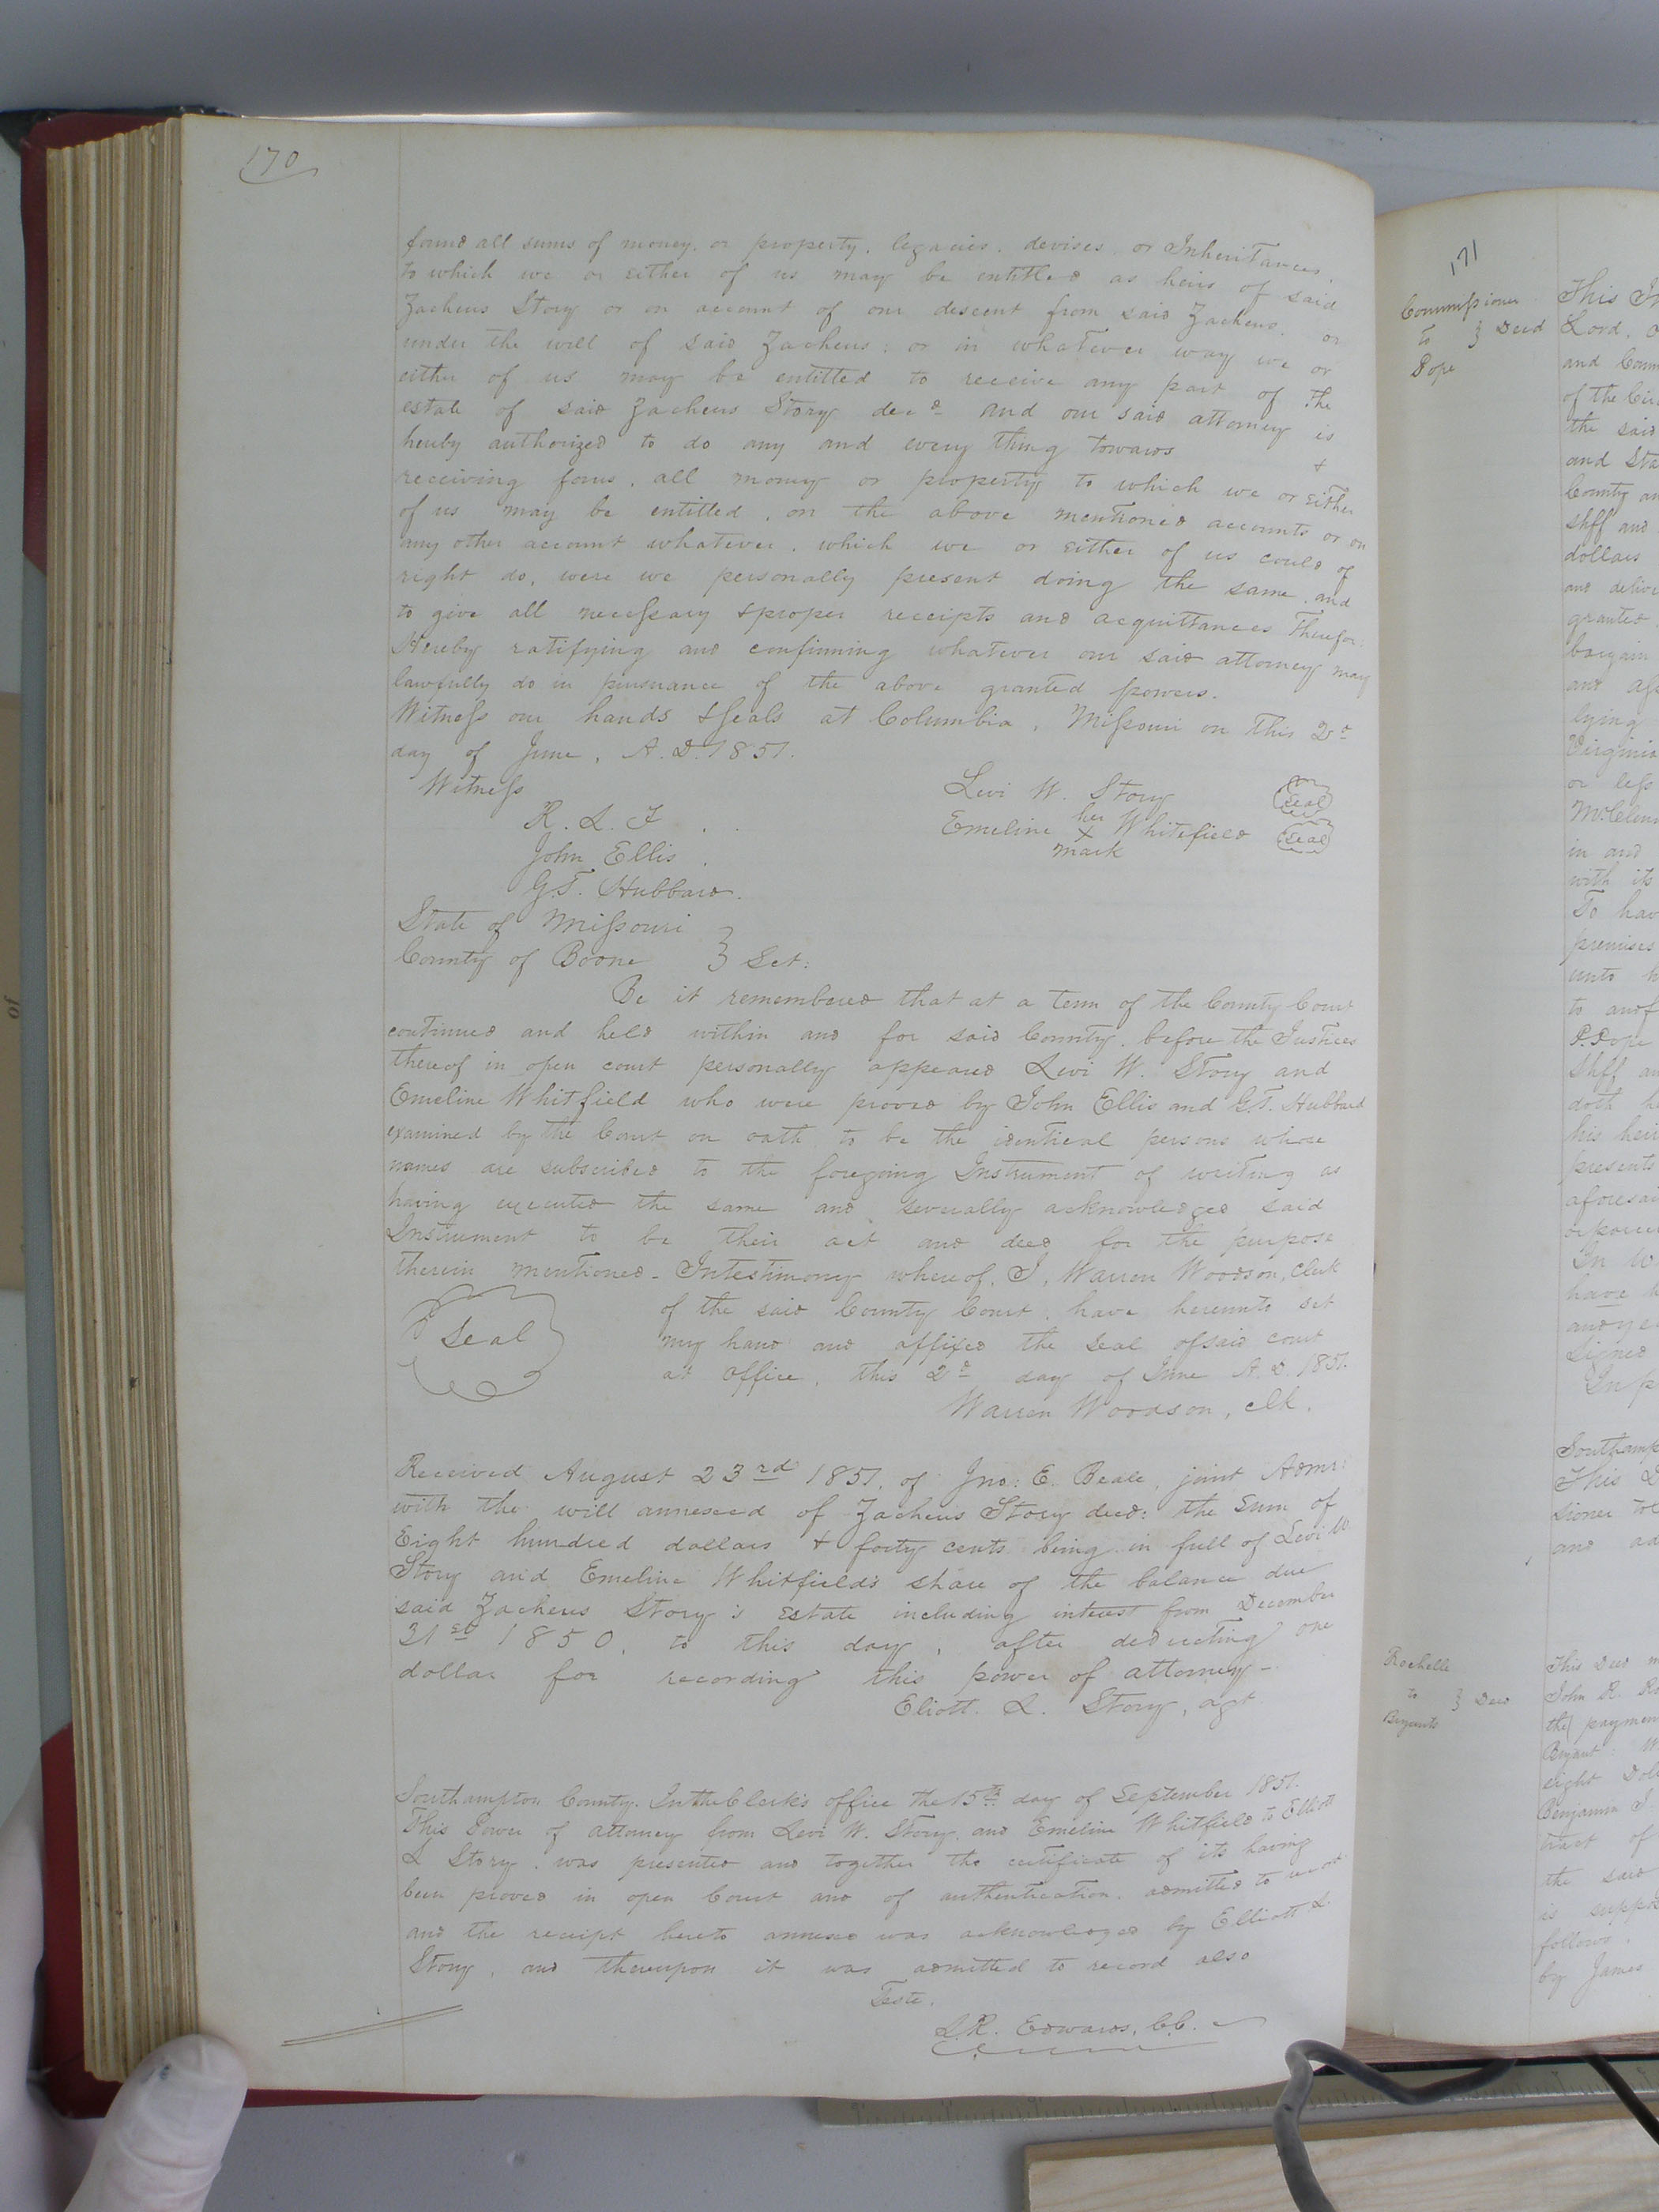 170
found all sums of money, or property, legacies, devises, or Inheritances,
to which we or either of us may be entitled as heirs of said
Zacheus Story or on account of our descent from said Zacheus, or
under the will of said Zacheus; or in whatever way we or
either of us may be entitled to receive any part of the
estate of said Zacheus Story decd and our said attorney is
hereby authorized to do any and every thing towards +
receiving for us, all money or property to which we or either
of us may be entitled, on the above mentioned accounts or on
any other account whatever, which we or either of us could of
right do, were we personally present doing the same, and
to give all necessary & proper receipts and acquittances therefor.
Hereby ratifying and confirming whatever our said attorney may
lawfully do in pursuance of the above granted powers.
Witness our hands & seals at Columbia, Missouri on this 2d
day of June, A.D. 1851.
Witness
Levi W. Story Seal
R. L. F
her
Emeline x Whitefield Seal
mark
John Ellis.
G.T. Hubbard.
State of Missouri
County of Boone } Sct:
Be it remembered that at a term of the County Court
continued and held within and for said County, before the Justices
thereof in open court personally appeared Levi W. Story and
Emeline Whitfield who were proved by John Ellis and G.T. Hubbard
examined by the Court on oath to be the identical persons whose
names are subscribed to the foregoing Instrument of writing as
having executed the same and severally acknowledged said
Instrument to be their act and deed for the purpose
therein mentioned - In testimony whereof, I, Warren Woodson, Clerk
of the said County Court, have hereunto set
Seal
my hand and affixed the seal of said court
at office, this 2d day of June A.D. 1851.
Warren Woodson, clk.
Received August 23rd 1851, of Jno: E. Beale, joint Admr:
with the will annexed of Zacheus Story decd: the sum of
Eight hundred dollars & forty cents being in full of Levi W.
Story and Emeline Whitfield's share of the balance due
said Zacheus Story's Estate including interest from December
31st 1850, to this day, after deducting one
dollar for recording this power of attorney -
Eliott. L. Story, agt
Southampton County. In the Clerk's office the 15th day of September 1851.
This Power of attorney from Levi W. Story, and Emeline Whitfield to Elliott
L Story, was presented and together the certificate of its having
been proved in open Court and of authentication, admitted to record
and the receipt hereto annexed was acknowledged by Elliott L.
Story, and thereupon it was admitted to record also
Teste,
L.R. Edwards, C.C.
171
Commissioner
to } Deed
Pope
This
Lord,
and
of the
the said
and
County
shff and
dollars
and
granted
bargain
and
lying
Virginia
or less
in and
with its
To
premises
unto
to
P. Pope
Shff
doth
his heirs
presents
In
have
Signed
This
and
Rochelle
to } Deed
Bryants
This Deed
John R.
the payment
Bryant:
eight
Benjamin J.
tract of
the said
is
follows,
by James